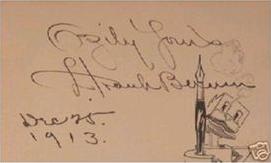 Ozily Yours
L. Frank Baum
Dec 25.
1913.